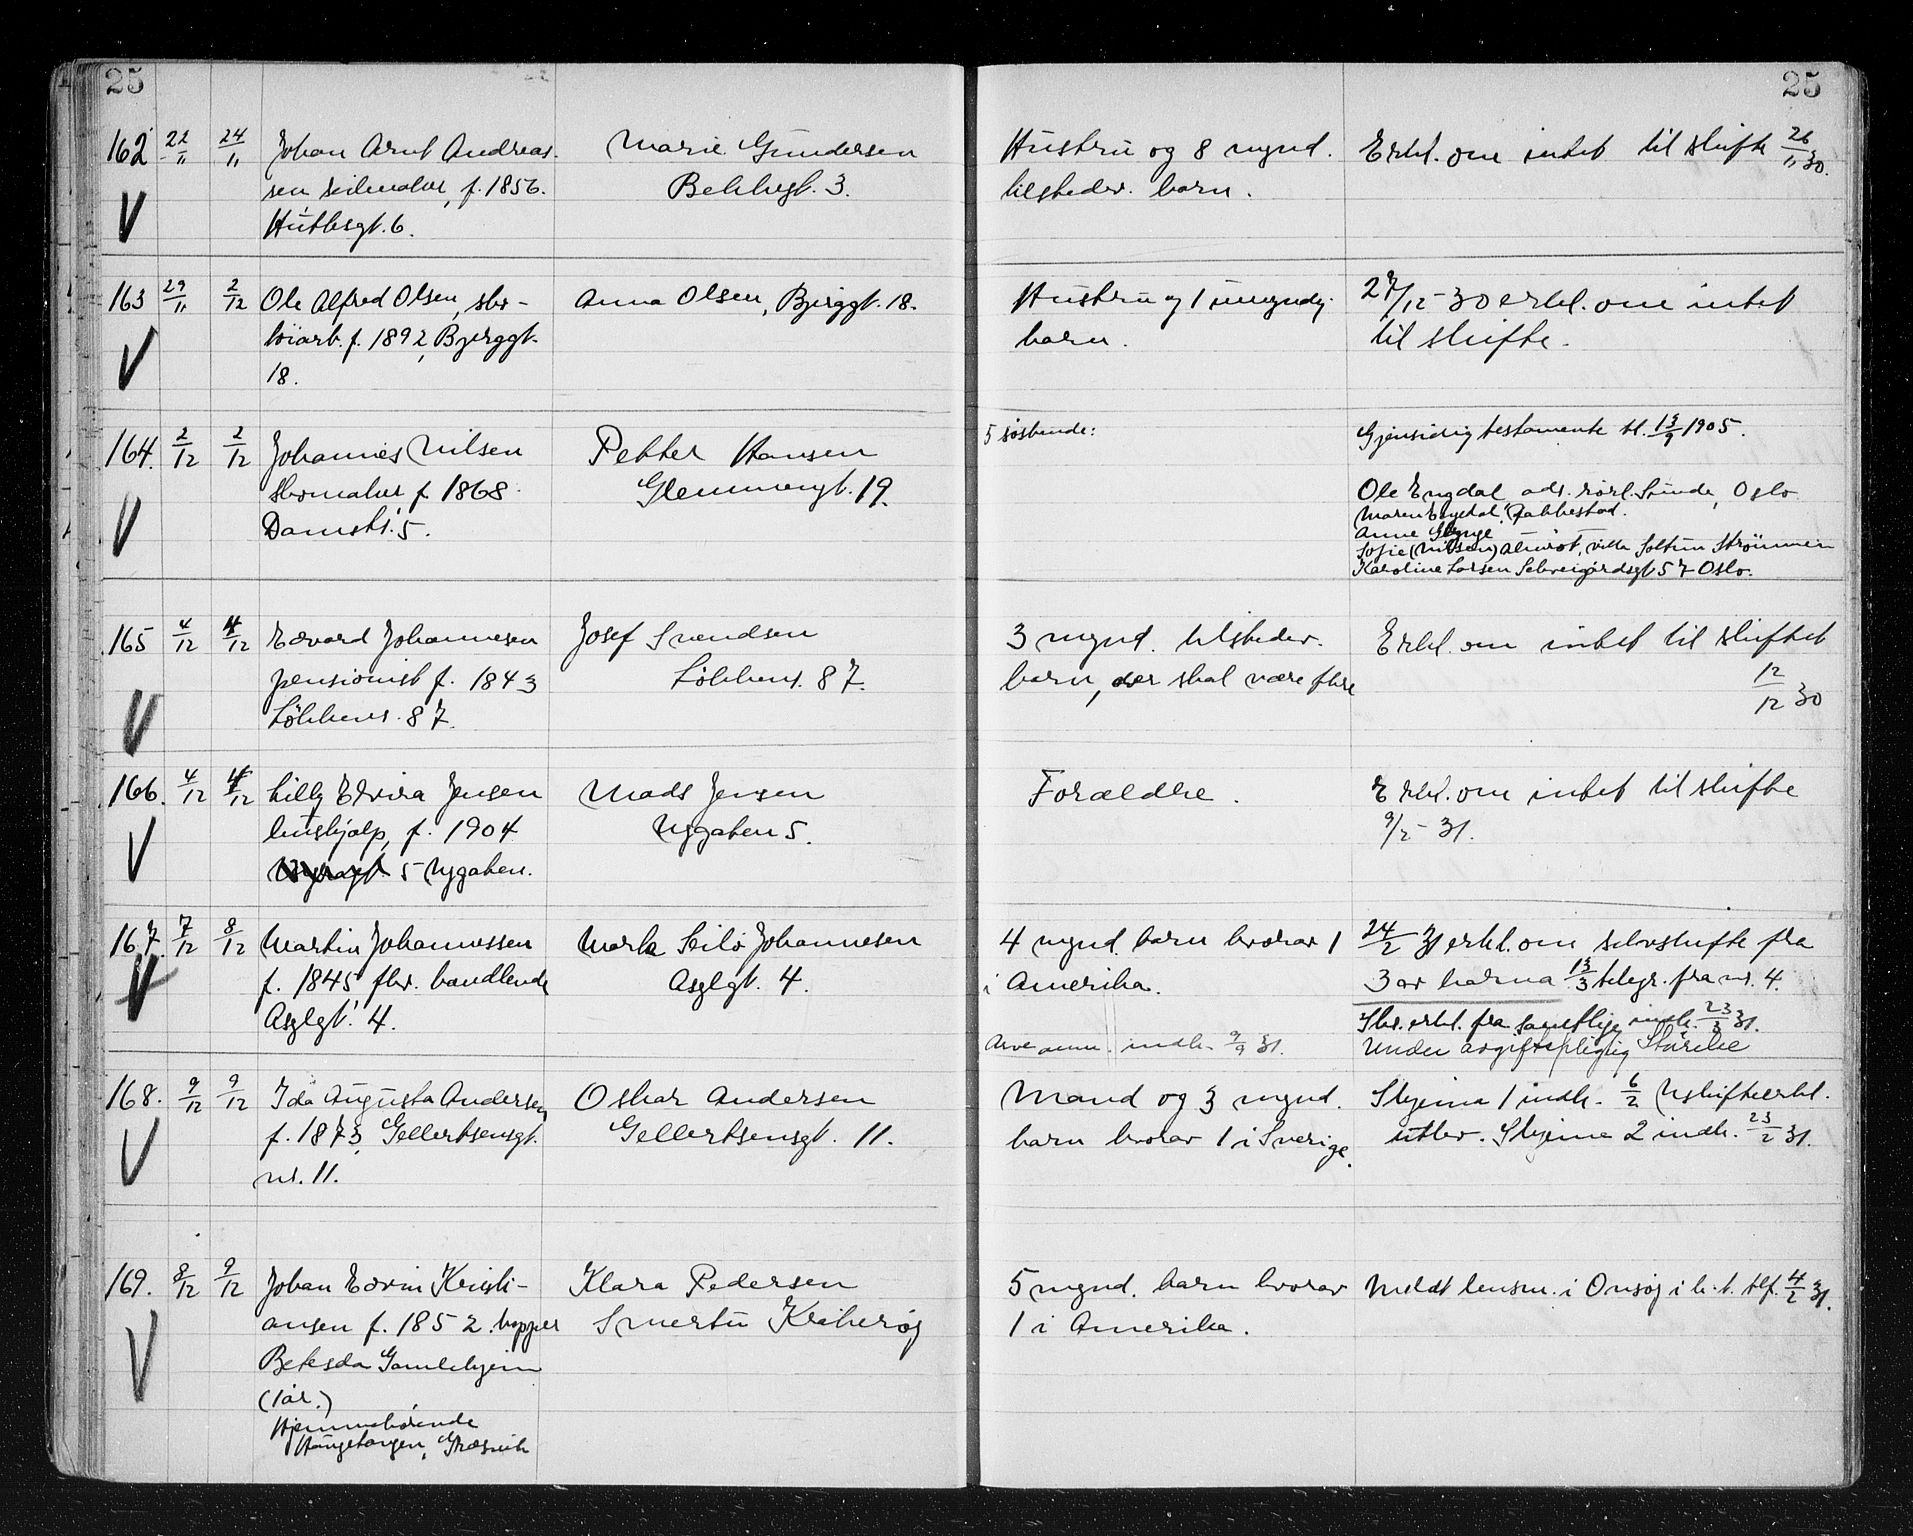 25 25
162 22/11 24/11 Johan Arnt Andreas- Marie Gundersen Hustru og 8 mynd. Erkl. om intet til skifte 26/11 30.
sen, seilmaker, f. 1856. Bekkegt. 3. tilstedev. barn.
V Huthsgt. 6.
163 29/11 2/12 Ole Alfred Olsen, sko- Anna Olsen, Bjerggt. 18. Hustru og 1 umyndig 27/12-30 erkl. om intet
töiarb. f. 1892, Bjerggt. barn. til skifte.
V 18.
5 söskende: Gjensidig testamente tl. 13/9 1905.
164. 2/12 2/12 Johannes Nilsen Petter Hansen
skomaker f. 1868. Glemmengt. 19. Ole Engdal, ads. rörl. Sunde, Oslo
V Damstr. 5. Maren Engdal, Rakkestad.
Anne
Sofie (Nilsen) Almrot, villa Soltun Strömmen
Karoline Larsen Schweigårdsgt 57 Oslo.
165 4/12 4/12 Edvard Johannesen Josef Svendsen 3 mynd. tilstedev. Erkl. om intet til skiftet
pensionist f. 1843 Lökkens. 87. barn, der skal være flere 12/12 30
V Lökkens. 87.
166. 4/12 4/12 Lilly Elvira Jensen Mads Jensen Forældre. Erkl. om intet til skifte
hushjælp, f. 1904 Nygaten 5. 9/2-31.
V 5 Nygaten.
167. 7/12 8/12 Martin Johannessen Johannesen 4 mynd. barn hvorav 1 24/2 31 erkl. om selvskifte fra
f. 1845 fhv. handlende Asylgt. 4. i Amerika. 3 av barna 13/3 telegr. fra nr. 4.
V Asylgt. 4. Skr. erkl. fra samtlige indk. 23/3 31.
Arveanm. indk. 9/9 31. Under avgiftspligtig
168. 9/12 9/12 Ida Augusta Andersen, Oskar Andersen Mand og 3 mynd. Skjema 1 indk. 6/2 Uskifteerkl.
f. 1873, Gellertsensgt. Gellertsensgt. 11. barn hvorav 1 i Sverige. utlev. Skjema 2 indk. 23/2 31.
V nr. 11.
169. 8/12 9/12 Johan Edvin Kristi- Klara Pedersen 5 mynd. barn hvorav Meldt lensm. i Onsøy i h. t. tlf. 4/2 31.
ansen f. 1852. Smertu Kråkerøy 1 i Amerika.
Betesda Gamlehjem
V (1 år.)
Hjemmehörende
Haugetangen, Græsvik